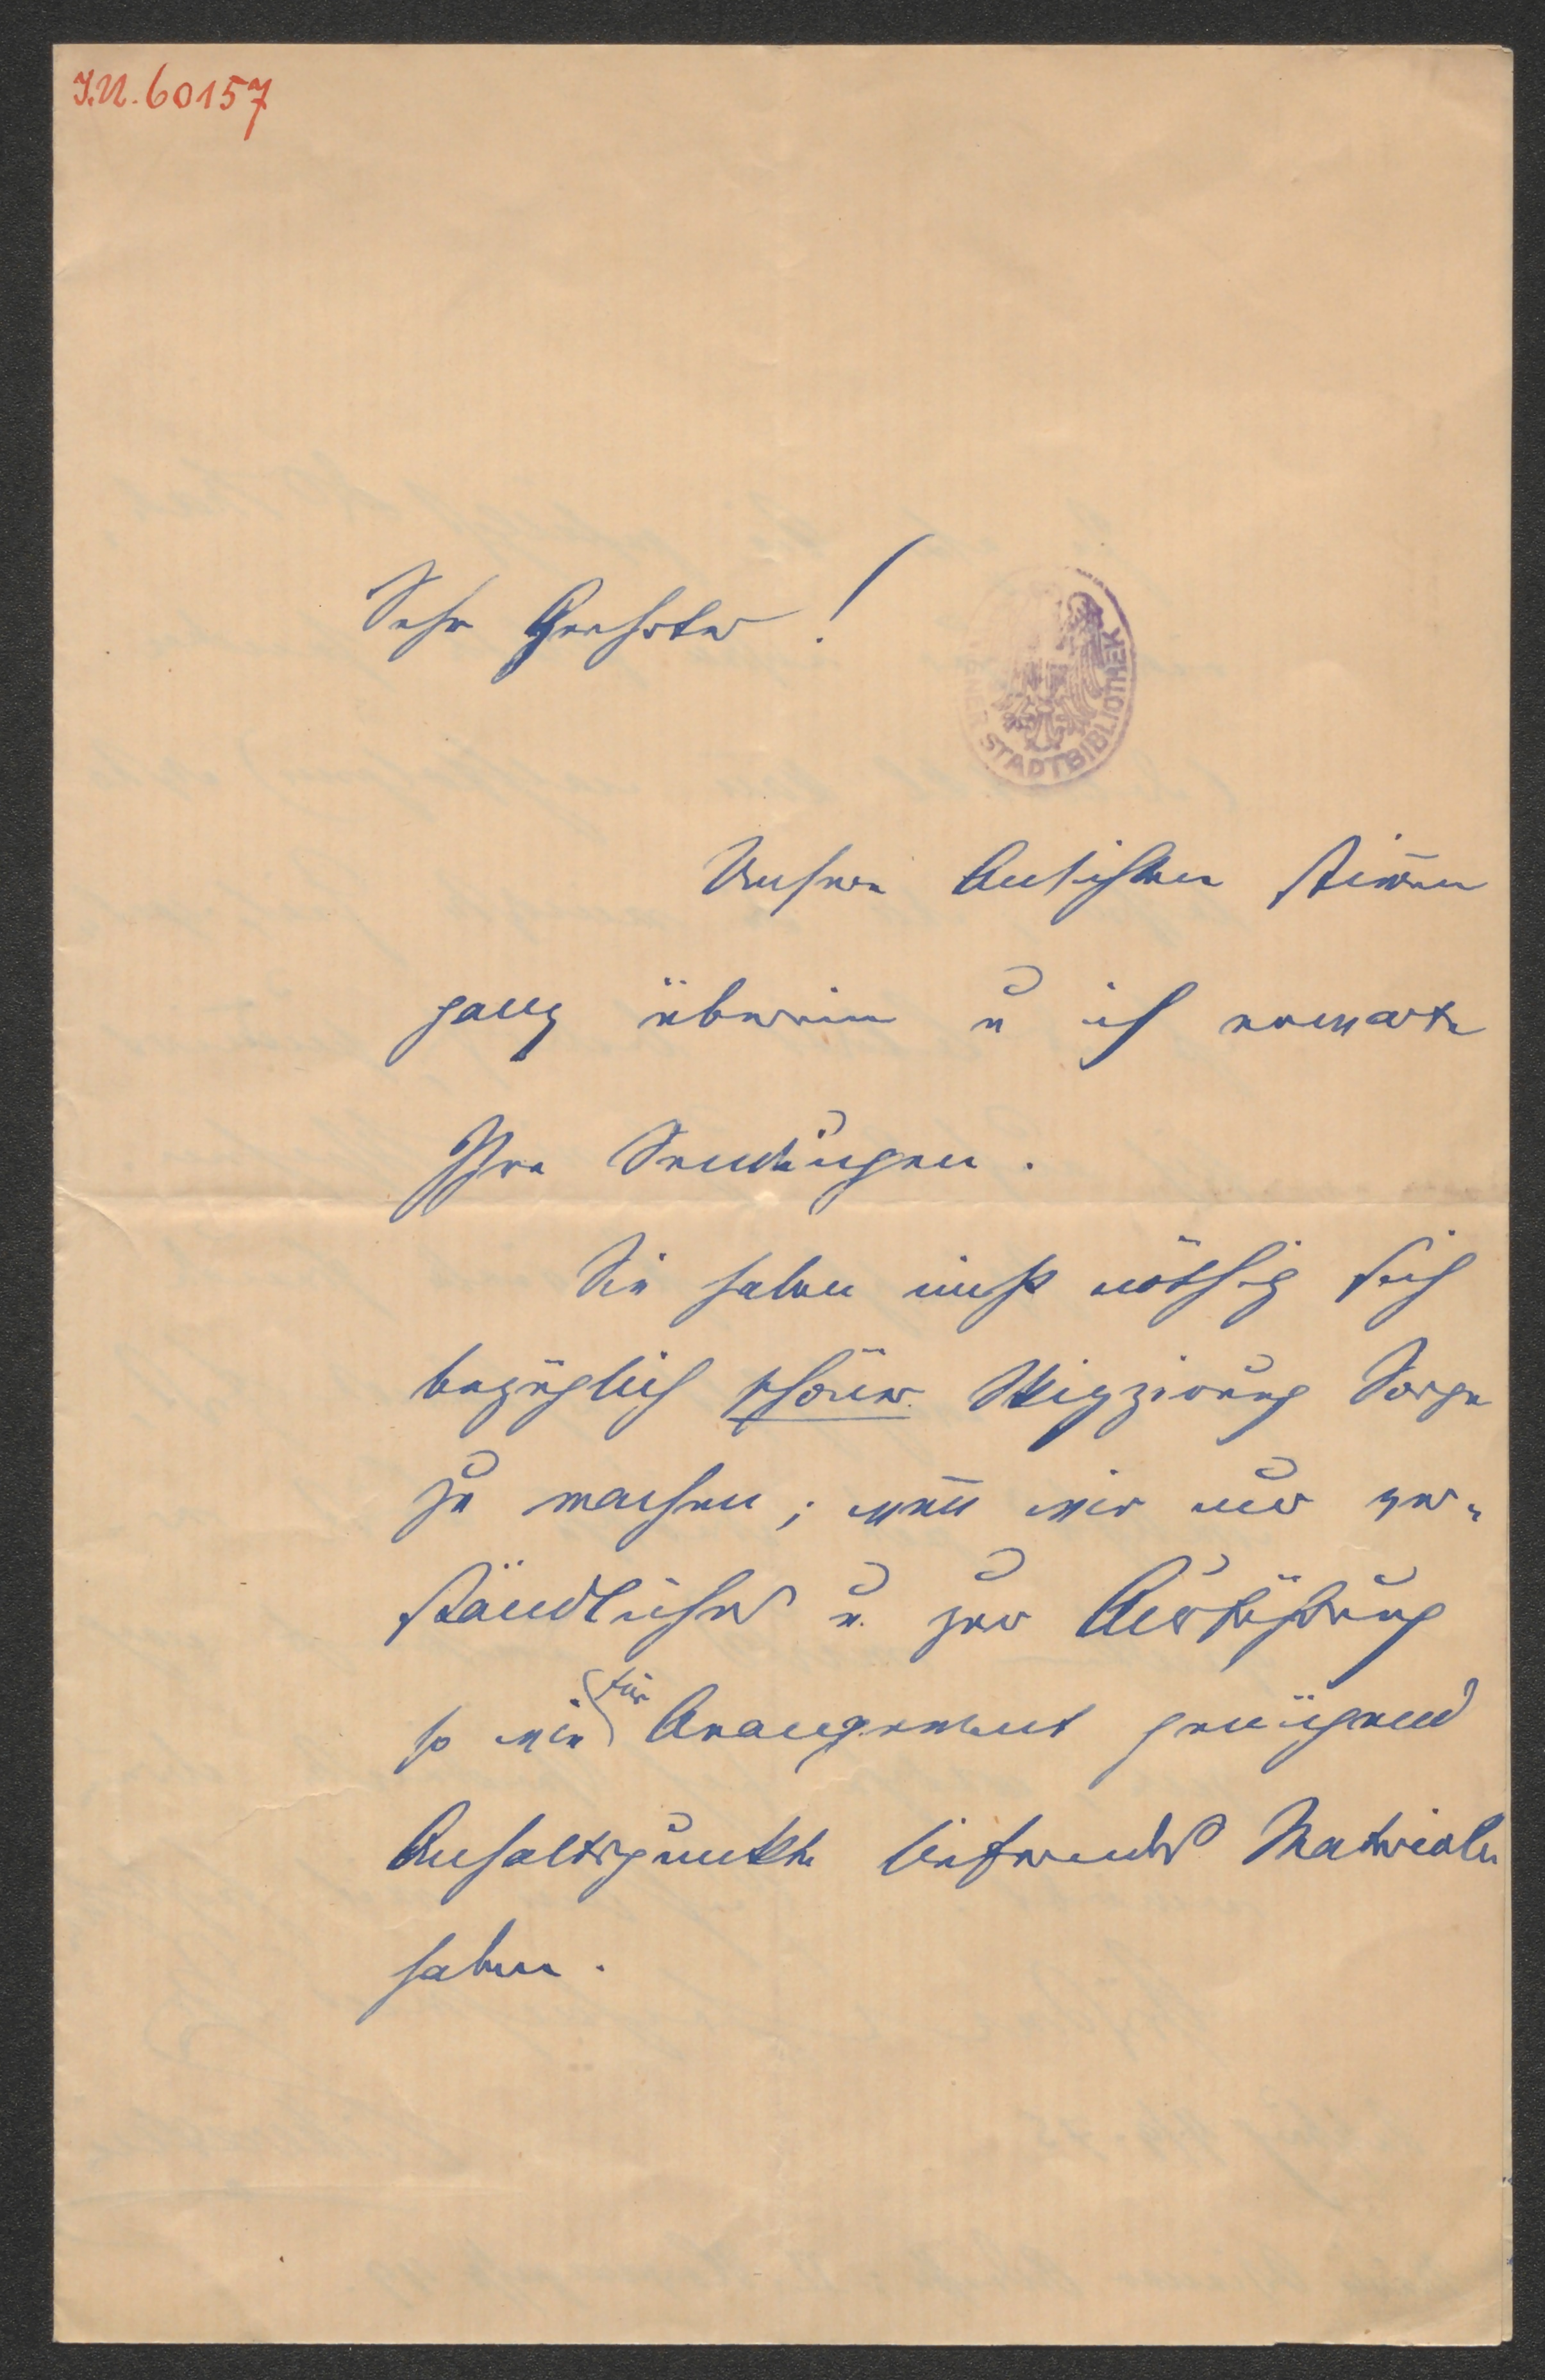 J.N. 60157
Sehr Geehrter!
WIENER STADTBIBLIOTHEK
Unsere Ansichten stim̅en
ganz überein u ich erwarte
Ihre Sendungen.
Sie haben nicht nöthig sich
bezüglich schöner Skizzirung Sorge
zu machen; wen̅ wir nur ver-
ständliches u. zur Ausführung
so wie für Arangement genügend
Anhaltspunkte lieferndes Materiale
haben.